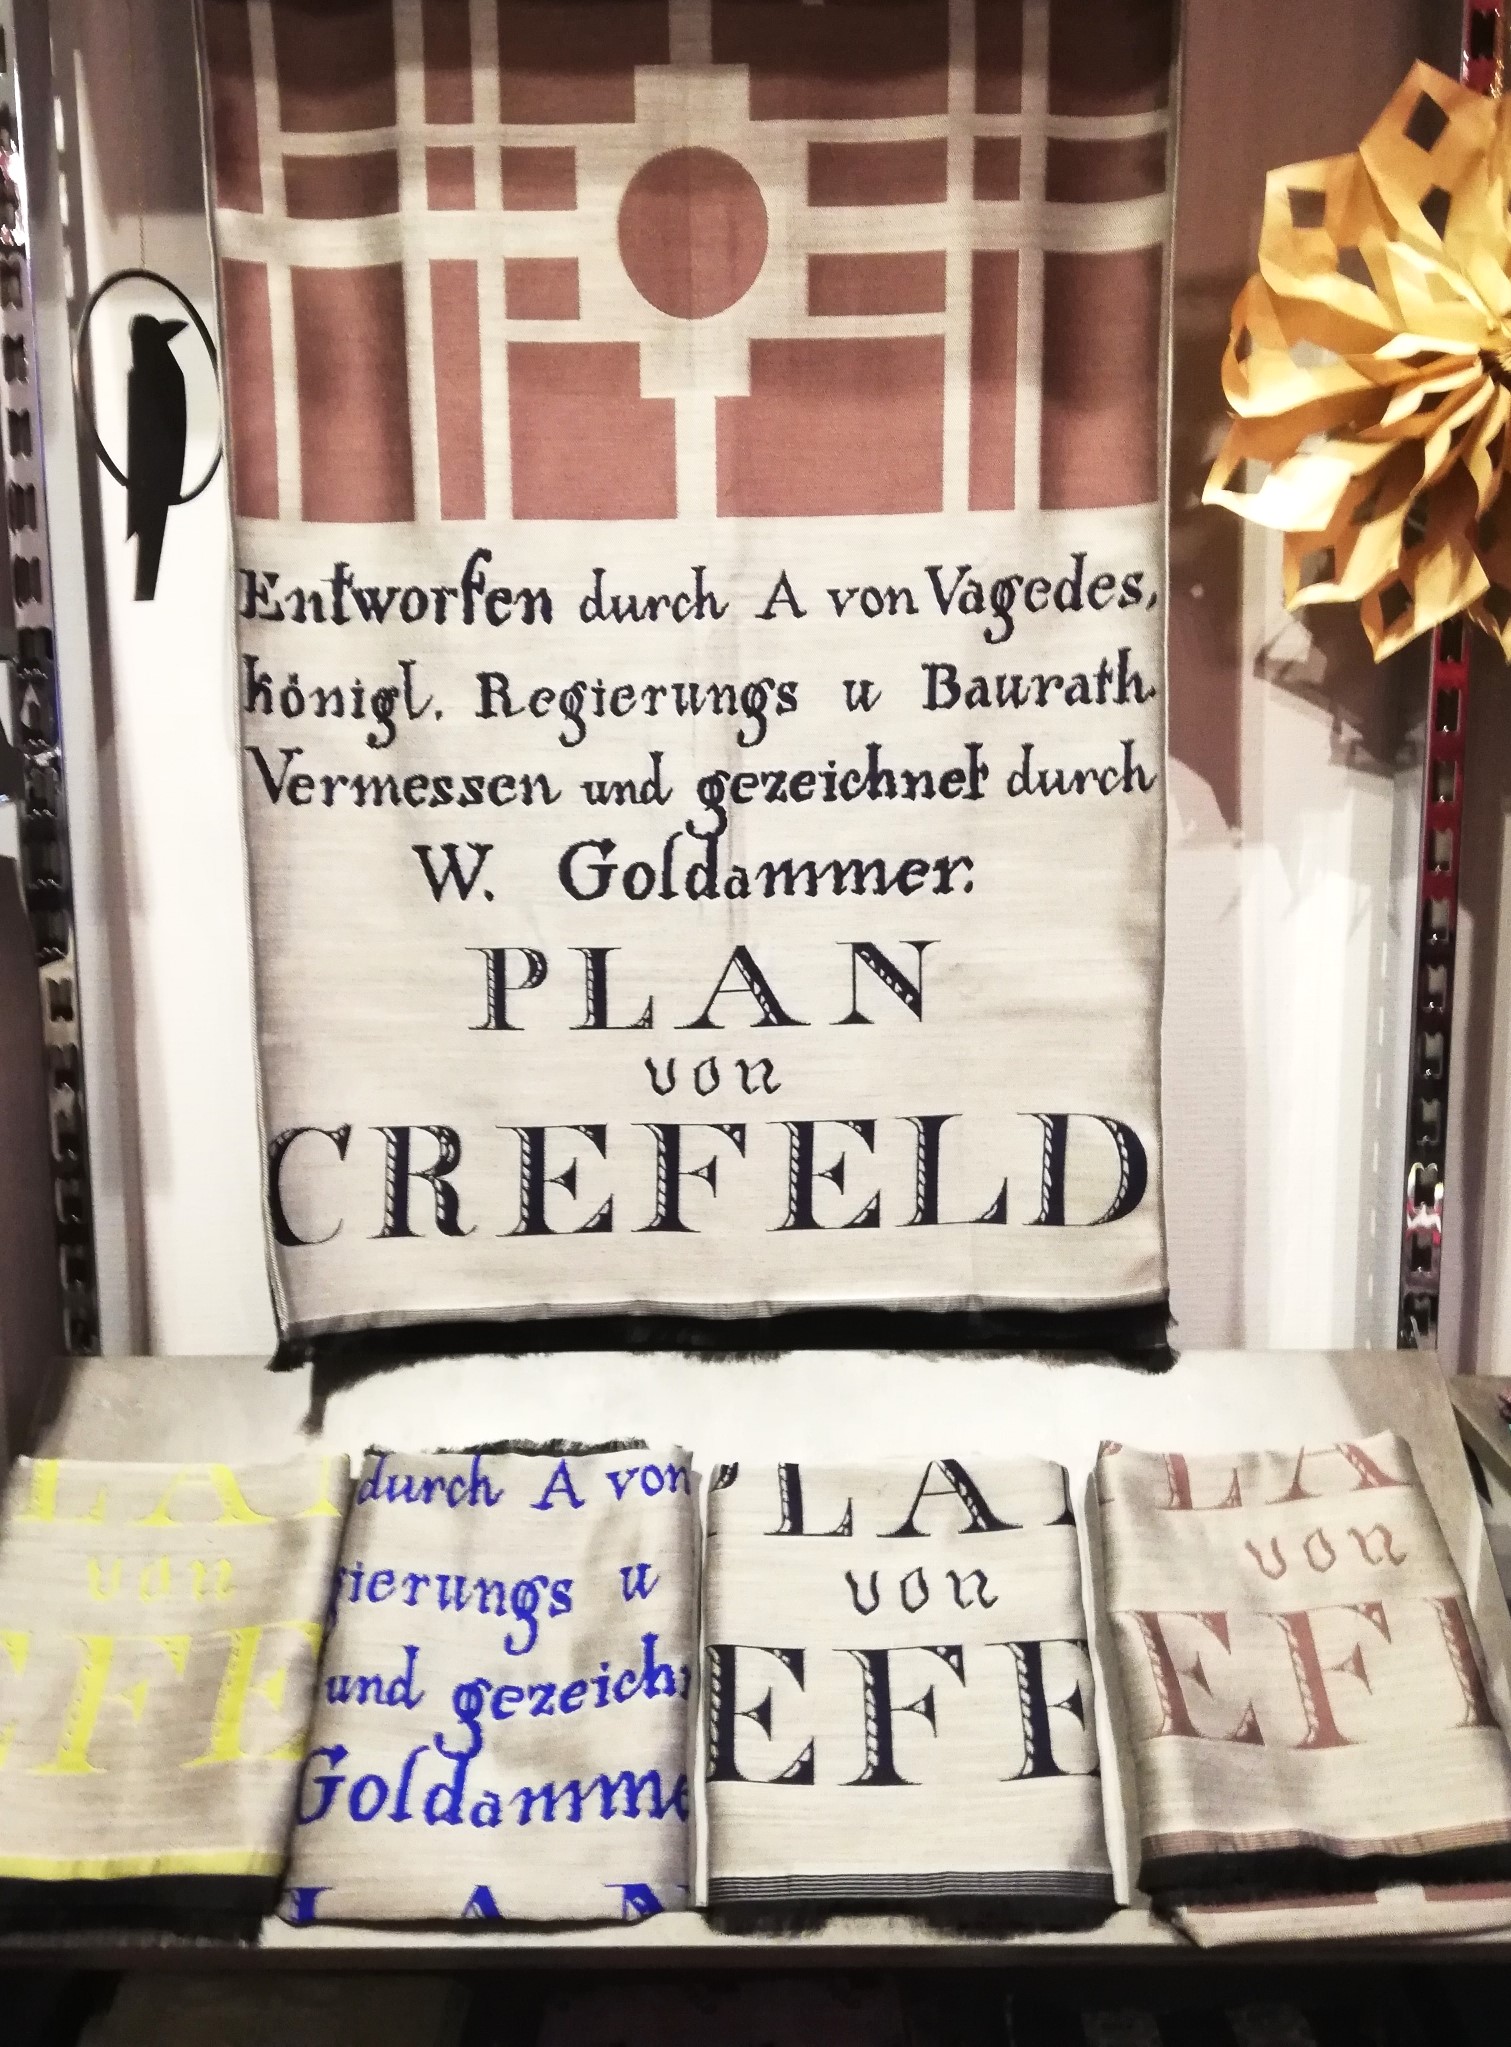 Entworfen durch A von Vagedes,
königl. Regierungs u Baurath.
Vermessen und gezeichnet durch
W. Goldammer.
PLAN
von
CREFELD
LA
von
EFE
durch A von
gierungs u
und gezeich
Goldamme
LAN
PLA
von
EFE
LA
von
EF